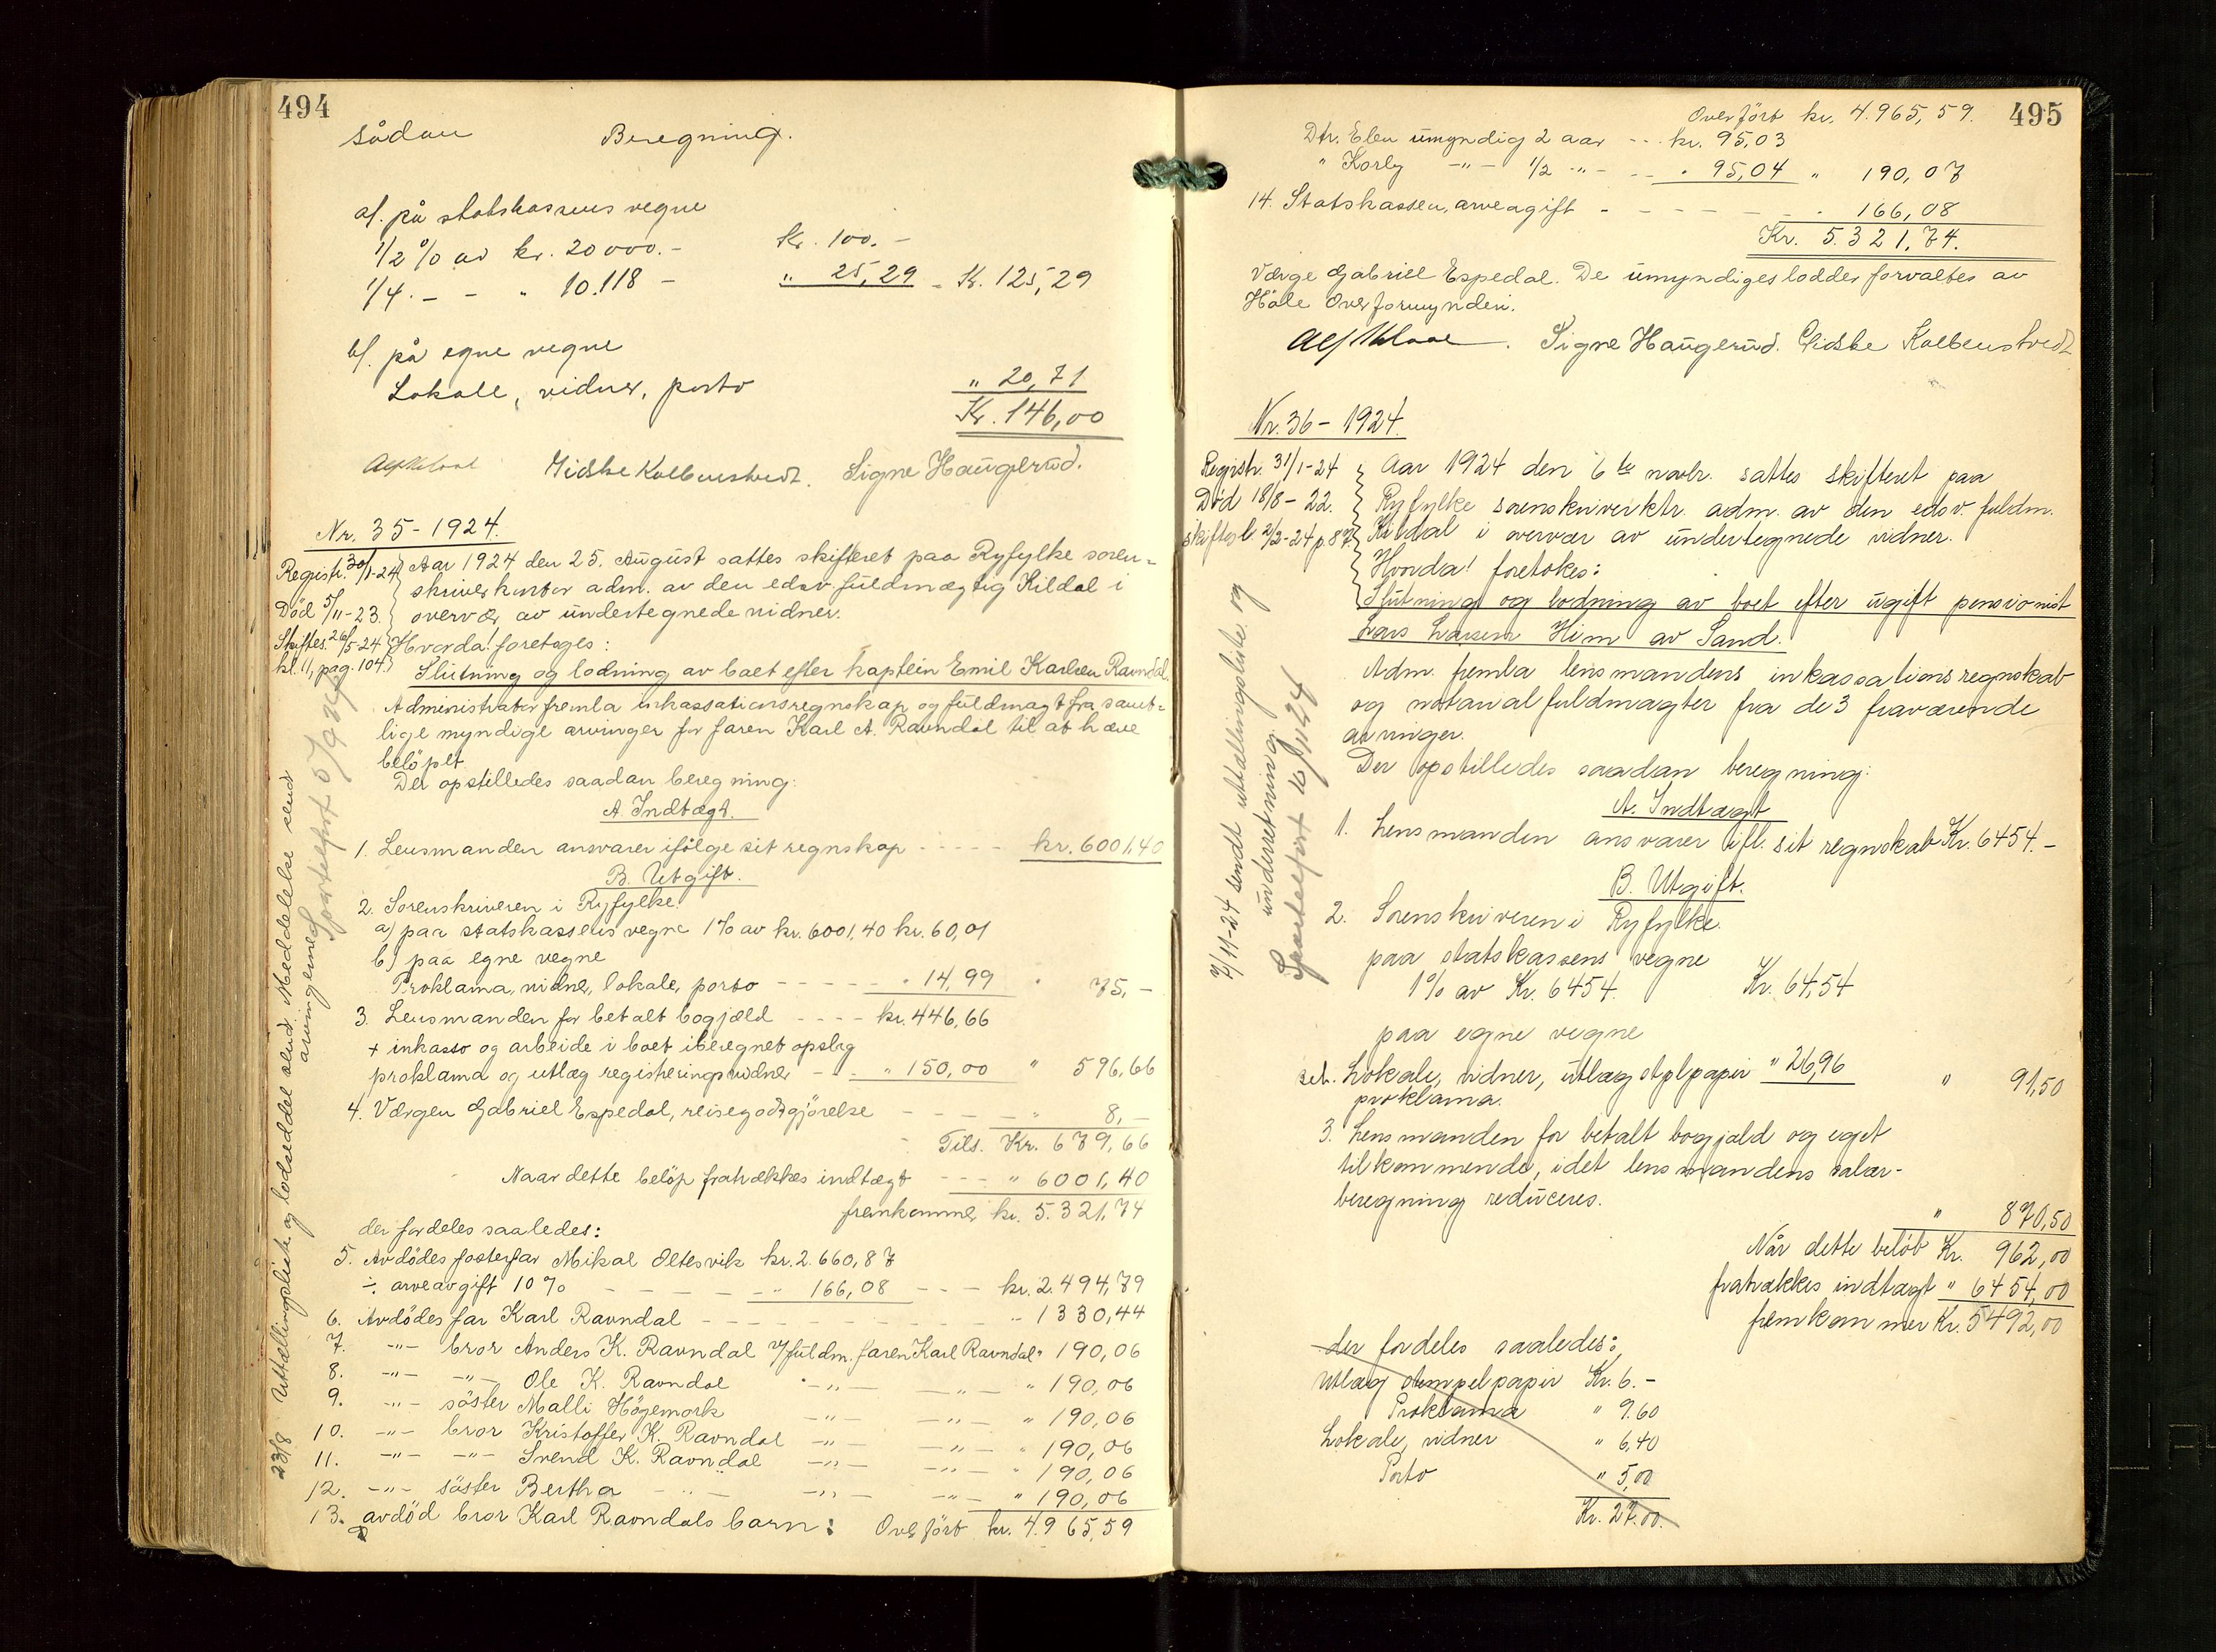 494
sådan Beregning.
a/. på statskassens vegne
1/2 % av kr. 20000.- Kr. 100.-
1/4. - - " 10.118 - " 25,29 - Kr. 125,29
b/. på egne vegne
Lokale, vidner, porto " 20,71
Kr. 146,00
Kolbenstvedt. Signe Haugerud.
Nr. 35 - 1924.
Registr. 30/1-24
Død 5/11-23.
Skiftes. 26/5-24
kl. 11, pag. 104
Aar 1924 den 25. August sattes skifteret paa Ryfylke soren-
skriverkontor adm. av den edsv. fuldmægtig Kildal i
overvær av undertegnede vidner.
Hvorda! foretages:
Slutning og lodning av boet efter kaptein Emil Karlsen Ravndal
Administrator fremla inkassationsregnskap og fuldmagt fra samt-
lige myndige arvinger for faren Karl A. Ravndal til at hæve
beløpet.
Der opstilledes saadan beregning:
A. Indtægt.
1. Lensmanden ansvarer ifølge sit regnskap - - - - - kr. 6001,40
B. Utgift.
2. Sorenskriveren i Ryfylke.
a) paa statskassens vegne 1% av kr. 6001,40 kr. 60,01
b) paa egne vegne
Proklama, vidner, lokale, porto - - - - - " 14,99 " 75,-
3. Lensmanden for betalt bogjæld - - - - kr. 446,66
+ inkasso og arbeide i boet iberegnet opslag
proklama og utlæg registreringsvidner - - - " 150,00 " 596,66
4. Værgen Gabriel Espedal, reisegodtgjørelse - - - - " 8,-
Tils. Kr. 679,66
Naar dette beløp fratrækkes indtægt - - - " 6001,40
fremkommer kr. 5.321,74
der fordeles saaledes:
5. Avdødes fosterfar Mikal Oltesvik kr. 2.660,87
÷ arveavgift 10% - - - - - - " 166,08 - - - kr. 2.494,79
6. Avdødes far Karl Ravndal - - - - - - - - - " 1330,44
7. -"- bror Anders K. Ravndal v/fuldm. faren Karl Ravndal " 190,06
8. -"- -"- Ole K. Ravndal -"- -"- " 190,06
9. -"- søster Malli Høgemork -"- -"- " 190,06
10. -"- bror Kristoffer K. Ravndal -"- -"- " 190,06
11. -"- -"- Svend K. Ravndal -"- -"- " 190,06
12. -"- søster Bertha -"- -"- -"- " 190,06
13. avdød bror Karl Ravndals barn: Overført kr. 4.965,59
23/8 Uttællingsliste og lodseddel sendt. Meddelelse sendt
arvingerne
Sportelført 5/9 24
495
Overført kr. 4.965,59.
Dtr. Elen umyndig 2 aar - - - kr. 95,03
" Korly -"- 1/2 -"- - - " 95,04 " 190,07
14. Statskassen, arveavgift - - - - - - " 166,08
Kr. 5.321,74.
Værge Gabriel Espedal. De umyndiges lodder forvaltes av
Høle Overformynderi.
Signe Haugerud. Kolbenstvedt
Nr. 36 - 1924.
Registr. 31/1-24
Død 18/8-22.
skiftesl. 2/2-24 p. 87
Aar 1924 den 6te novbr. sattes skifteret paa
Ryfylke sorenskriverktr. adm. av den edsv. fuldm.
Kildal i overvær av undertegnede vidner.
Hvorda! foretokes:
Slutning og lodning av boet efter ugift pensionist
Lars Larsen Him av Sand.
Adm. fremla lensmandens inkassationsregnskab
og notarialfuldmagter fra de 3 fraværende
arvinger.
Der opstilledes saadan beregning:
A. Indtægt
1. Lensmanden ansvarer ifl. sit regnskab Kr. 6454.-
B. Utgift.
2. Sorenskriveren i Ryfylke.
paa statskassens vegne
1% av Kr. 6454. Kr. 64,54
paa egne vegne
Lokale, vidner, utlæg stplpapir " 26,96 " 91,50
proklama.
3. Lensmanden for betalt bogjæld og eget
tilkommende, idet lensmandens salær-
beregning reduceres. " 870,50
Når dette beløb Kr. 962,00
fratrækkes indtægt " 6454,00
fremkommer Kr. 5492,00
der fordeles saaledes:
Utlæg stempelpapir Kr. 6.-
Proklama " 9.60
Lokale, vidner " 6,40
Porto " 5,00
Kr. 27.00.
7/11-24 sendt uttællingsliste og
underretning.
Sportelført 10/11 24